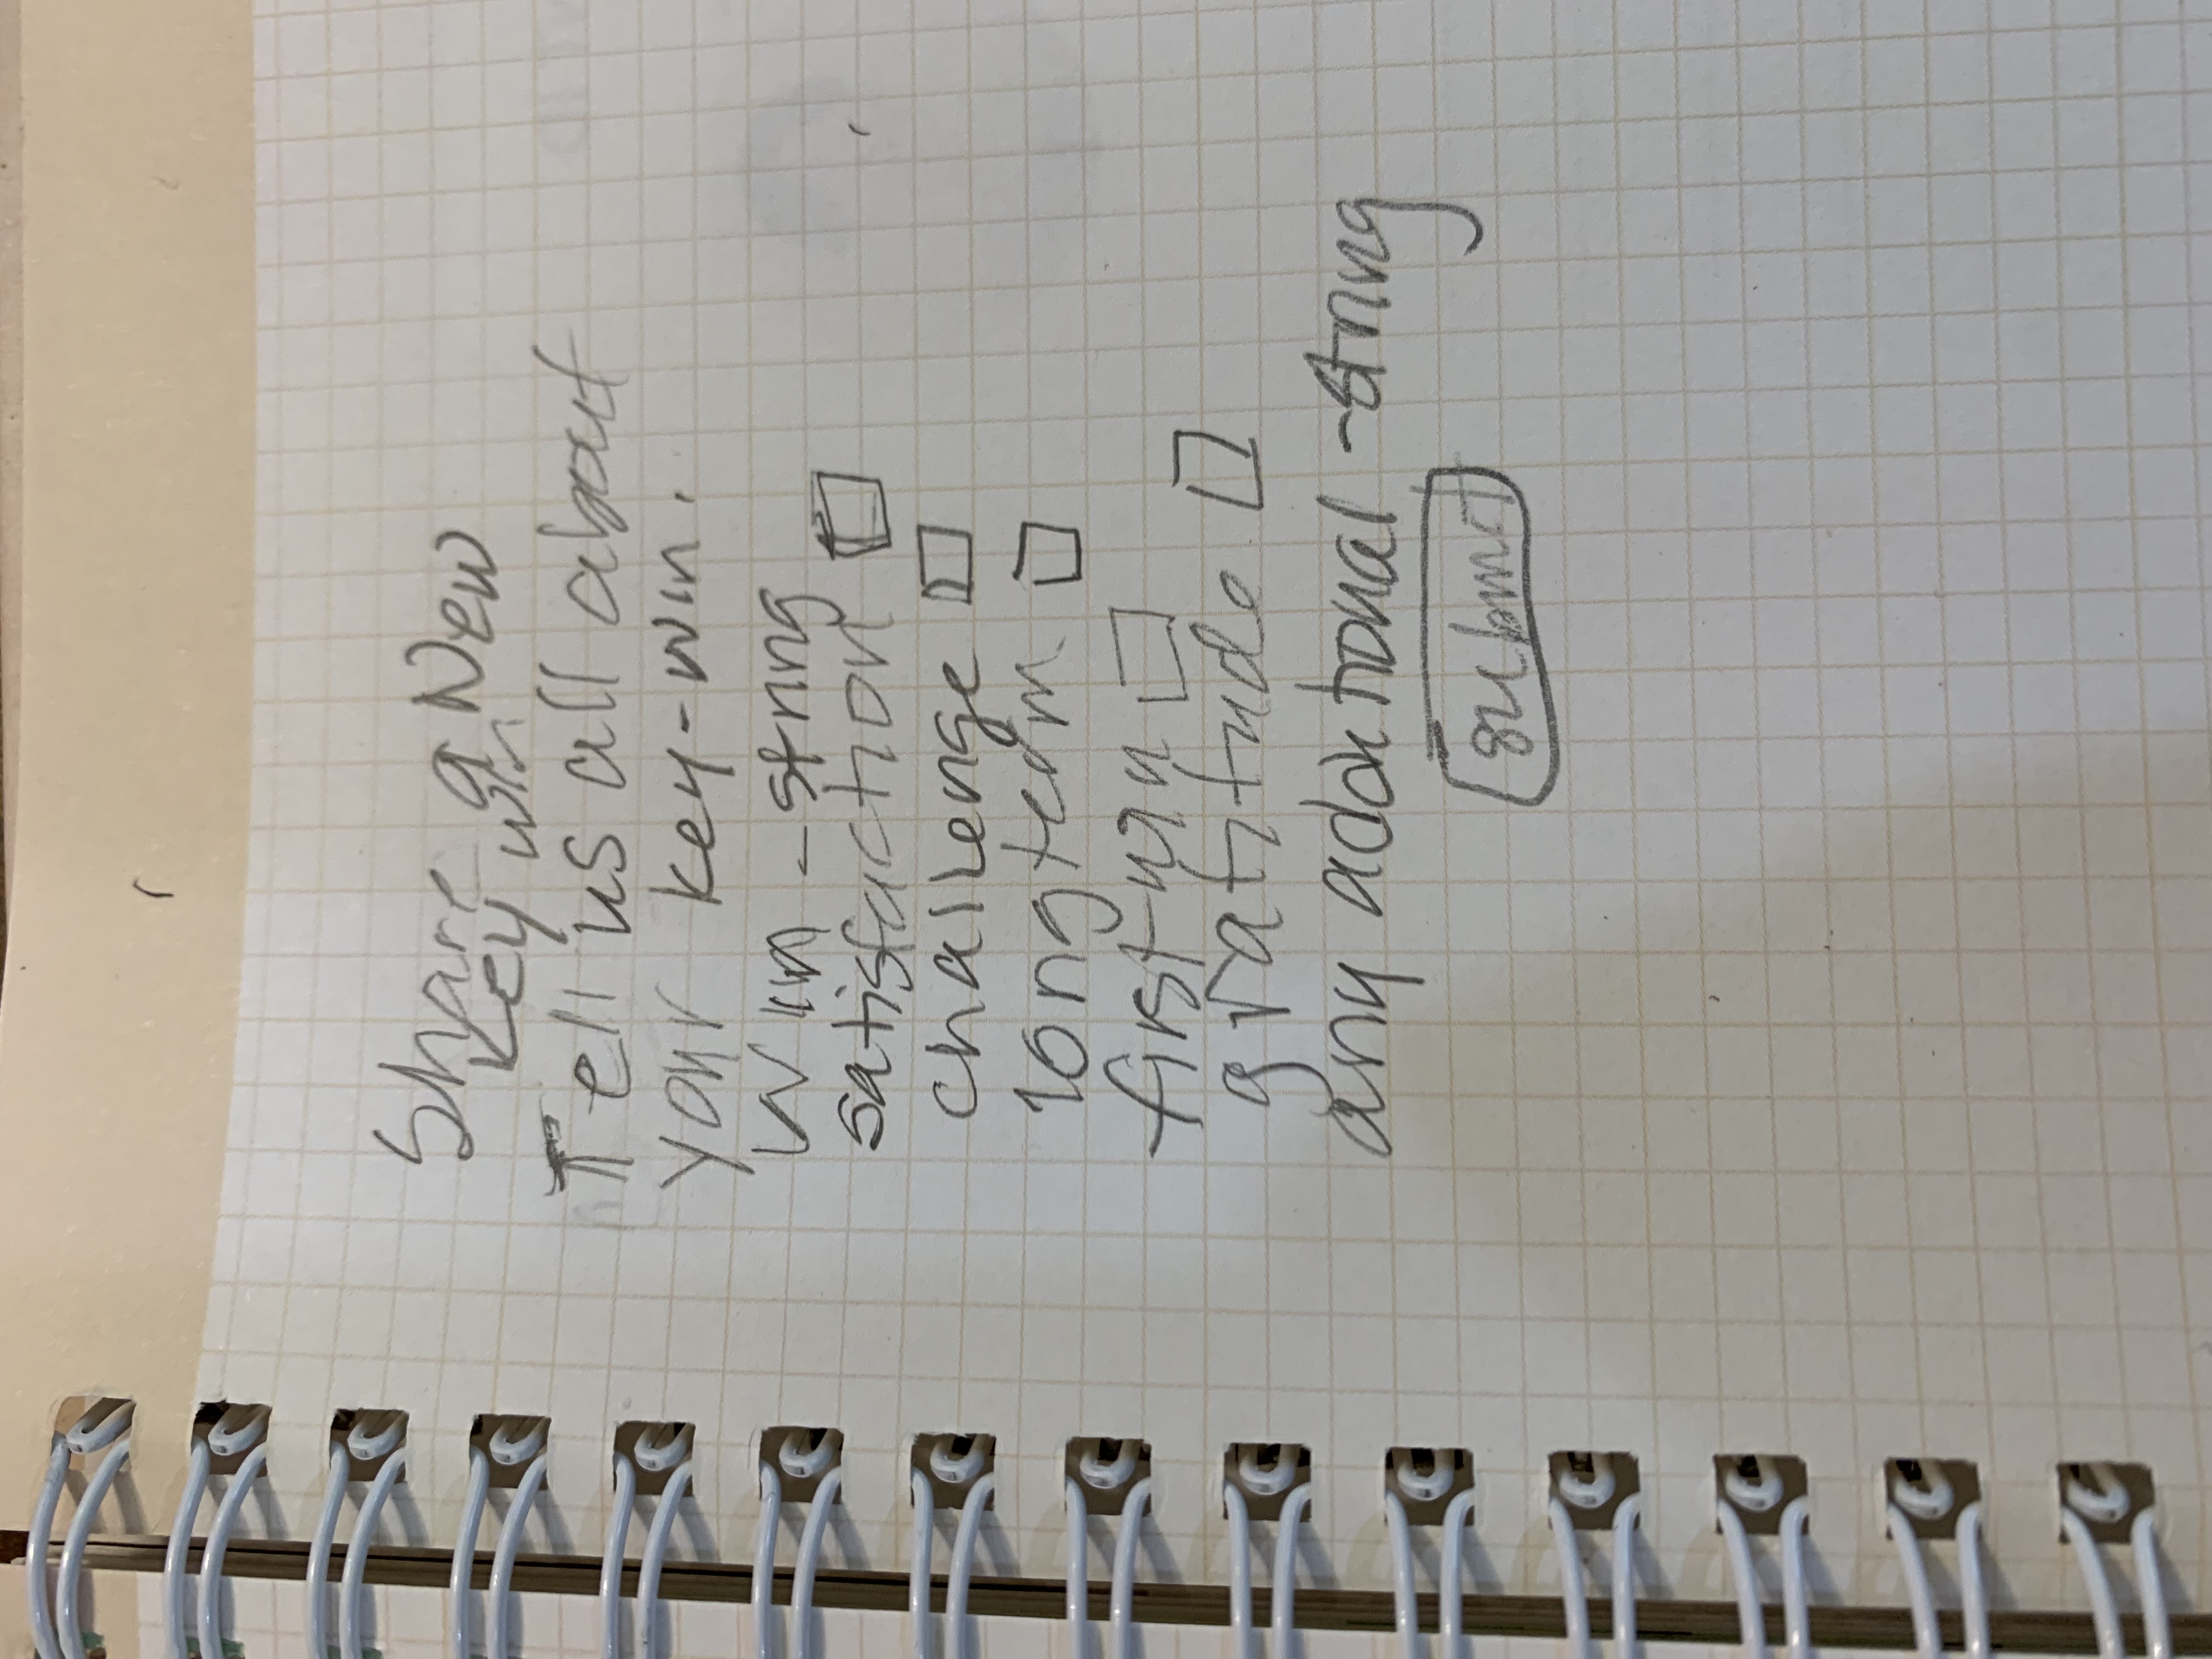 Share a New
key win
Tell us all about
your key-win.
Win - string
satisfaction
challenge
longterm
first-win
gratitude
any additional - string
submit